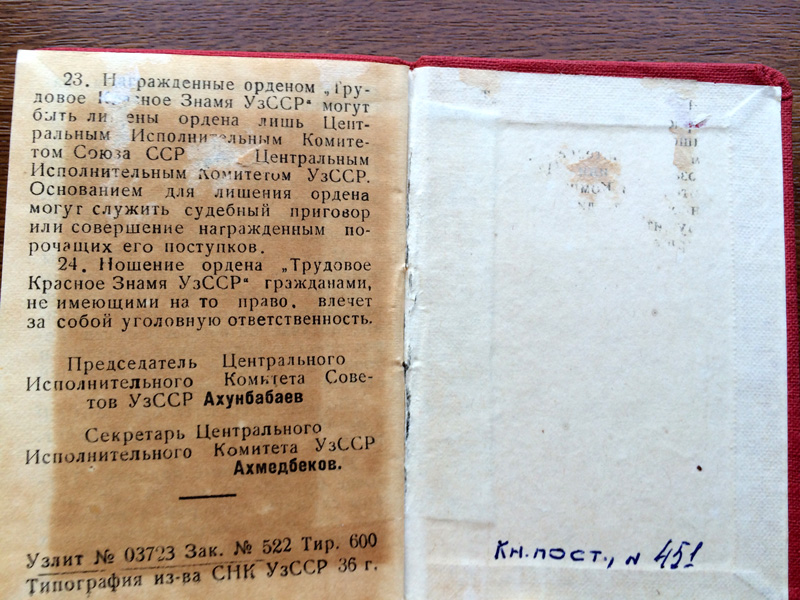 23. Награжденные орденом „Тру-
довое Красное Знамя УзССР“ могут
быть лишены ордена лишь Цент-
ральным Исполнительным Комите-
том Союза ССР Центральным
Исполнительным Комитетом УзССР.
Основанием для лишения ордена
могут служить судебный приговор
или совершение награжденным по-
рочащих его поступков.
24. Ношение ордена „Трудовое
Красное Знамя УзССР“ гражданами,
не имеющими на то право, влечет
за собой уголовную ответственность.
Председатель Центрального
Исполнительного Комитета Сове-
тов УзССР Ахунбабаев
Секретарь Центрального
Исполнительного Комитета УзССР
Ахмедбеков.
Узлит № 03723 Зак. № 522 Тир. 600
Типография из-ва СНК УзССР 36 г.
Кн. пост., № 451